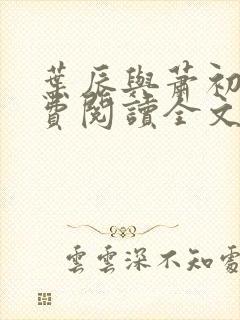 葉辰與蕭初
費閱讀全文
雲雲深不知處